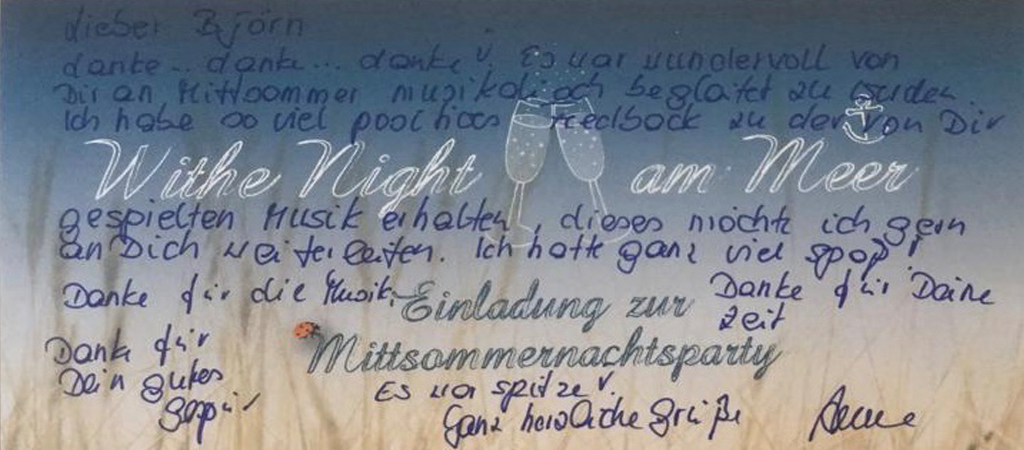 Lieber Björn
danke... danke... danke! Es war wundervoll von
Dir an Mittsommer musikalisch begleitet zu werden.
Ich habe so viel positives Feedback zu der von Dir
Withe Night am Meer
gespielten Musik erhalten, dieses möchte ich gern
an Dich weiterleiten. Ich hatte ganz viel spaß!
Danke für die Musik.
Einladung zur
Danke für Deine
Zeit
Mittsommernachtsparty
Danke für
Dein gutes
Gespür
Es war spitze!
Ganz herzliche Grüße